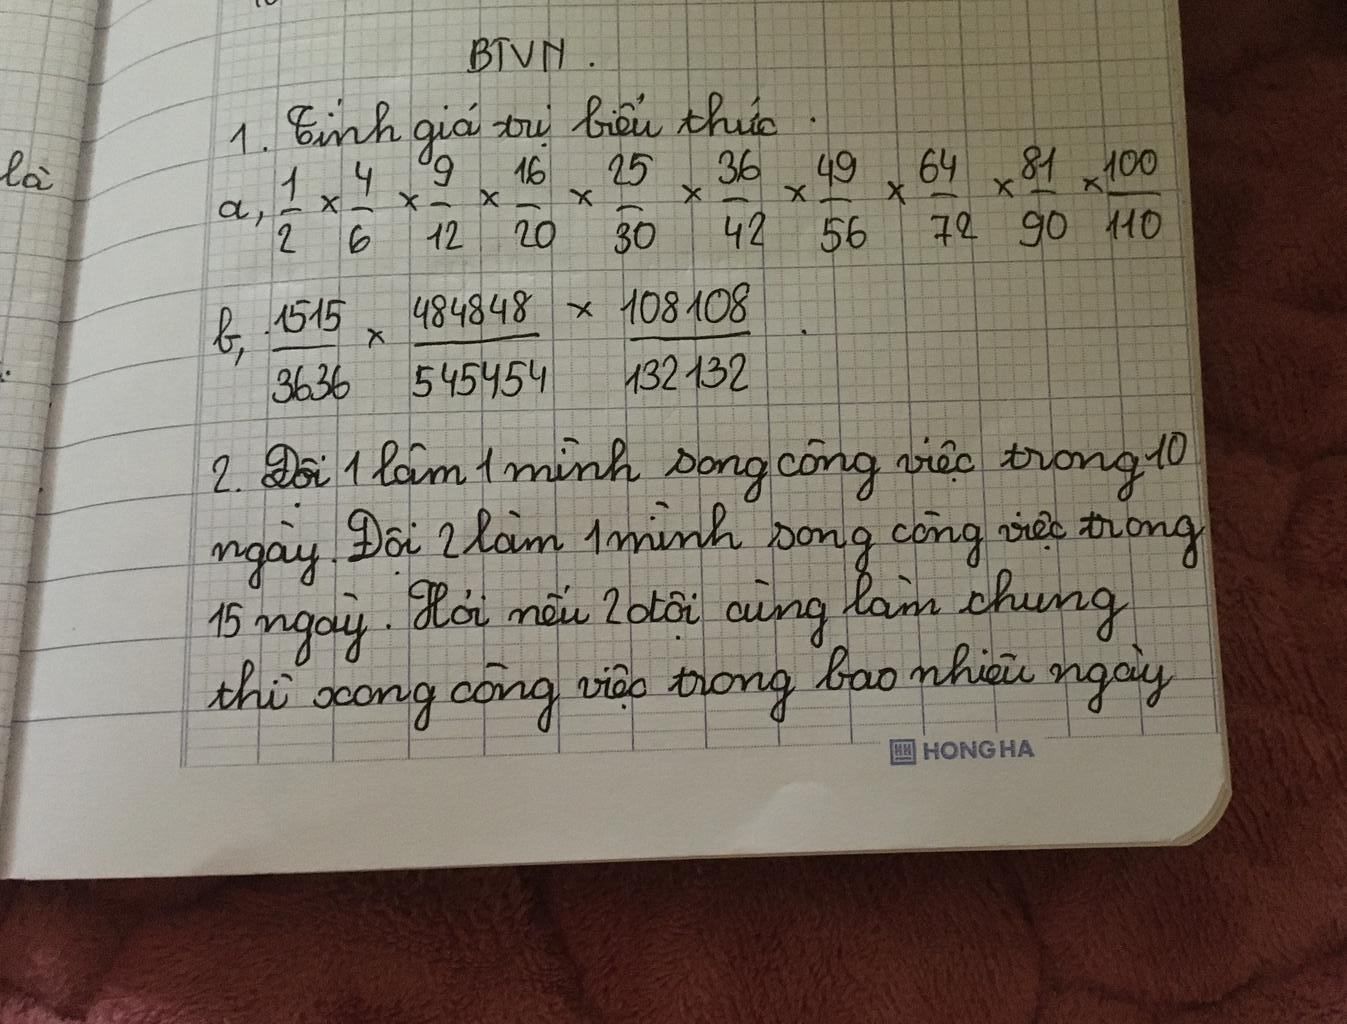 là
BTVN.
1. Tính giá trị biểu thức.
a, 1/2 × 4/6 × 9/12 × 16/20 × 25/30 × 36/42 × 49/56 × 64/72 × 81/90 × 100/110
b, 1515/3636 × 484848/545454 × 108108/132132.
2. Đội 1 làm 1 mình song công việc trong 10
ngày. Đội 2 làm 1 mình song công việc trong
15 ngày. Hỏi nếu 2 đội cùng làm chung
thì xong công việc trong bao nhiêu ngày
HONG HA